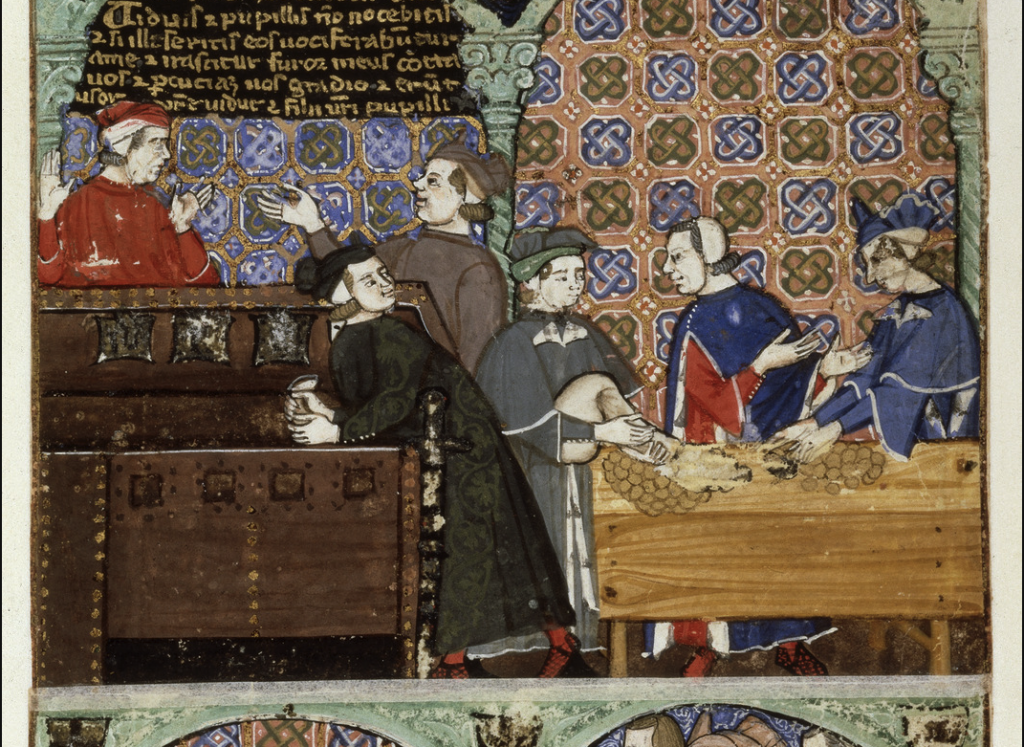 Uiduis ⁊ pupillis nō nocebitis
⁊ si illeseritis eos uociferabūtur
ame ⁊ irascitur furor meus cōtra
uos ⁊ ꝑcuciaꝫ uos gladio ⁊ erūt
uidue ⁊ filii ur̄i pupilli